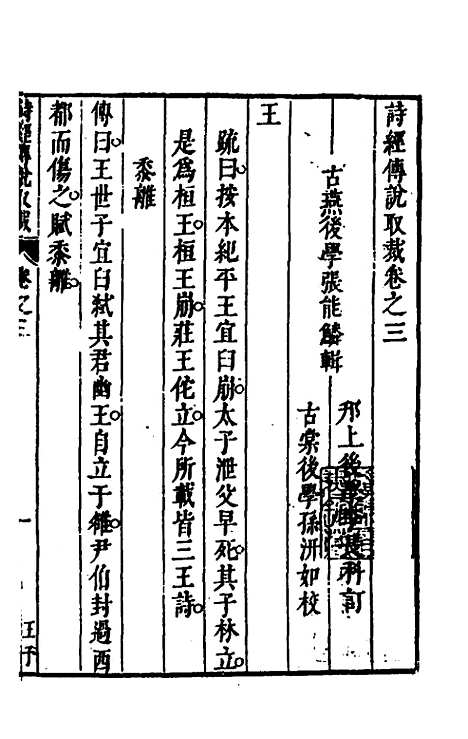 詩經傳說取裁卷之三
古燕後學張能鱗輯
邗上後學 科訂
古棠後學孫洲如校
王
疏曰按本紀平王宜臼崩太子泄父早死其子林立
是爲桓王桓王崩莊王佗立今所載皆三王詩
黍離
傳曰王世子宜臼弒其君幽王自立于雒尹伯封過西
都而傷之賦黍離
詩經傳說取裁
卷之三
一
王子